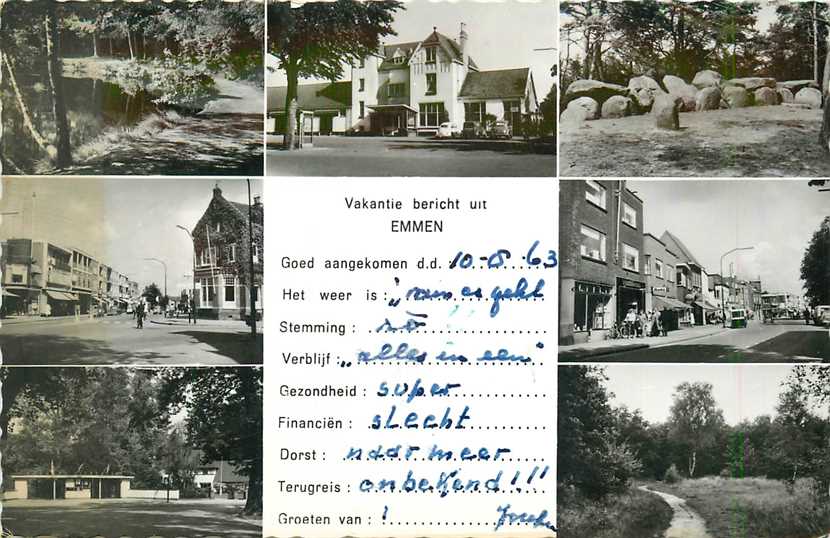 Vakantie bericht uit
EMMEN
Goed aangekomen d.d. 10-8-'63
Het weer is :
Stemming : zo
Verblijf : "alles in een"
Gezondheid : super
Financiën : slecht
Dorst : naar meer
Terugreis : onbekend!!!
Groeten van : !